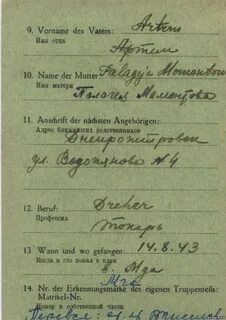 9. Vorname des Vaters: Artem
Имя отца
Артем
10. Name der Mutter:
Имя матери
Палагея Мамонтовa
11. Anschrift der nächsten Angehörigen:
Адрес ближайших родственников
ул. Водопянова № 4
12. Beruf: Dreher
Профессия
токарь
13 Wann und wo gefangen: 14.8.43
Когда и где попал в плен
14. Nr. der Erkennungsmarke des eigenen Truppenteils:
Matrikel-Nr.
Номер в собственной части